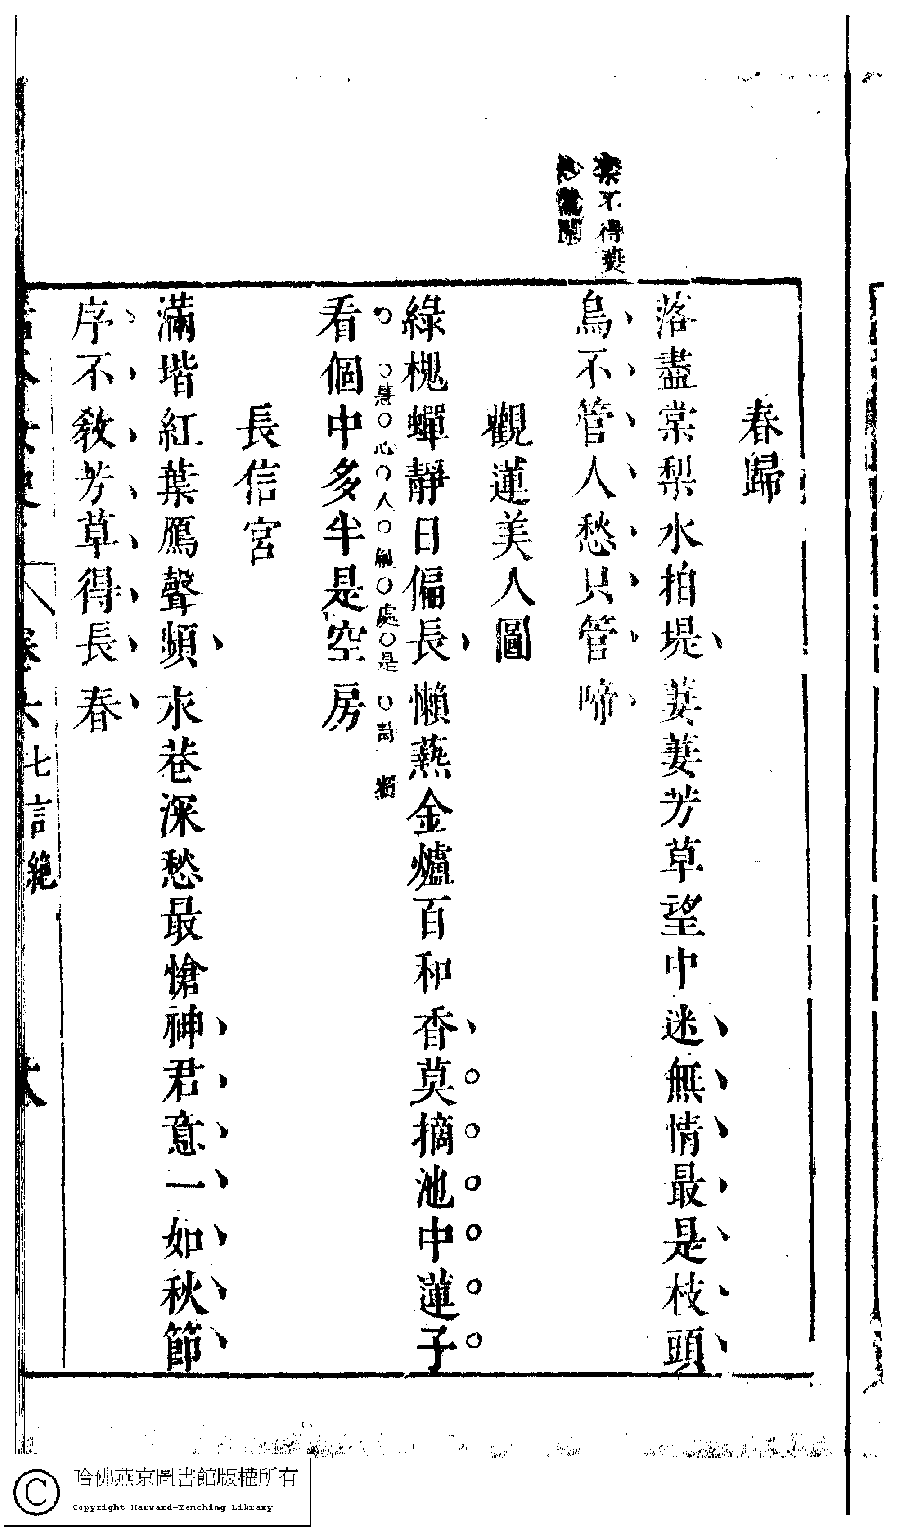 春歸
落盡棠梨水拍堤萋萋芳草望中迷無情最是枝頭
鳥不管人愁只管啼
觀蓮美人圖
綠槐蟬靜日偏長懶爇金爐百和香莫摘池中蓮子
看個中多半是空房
慧心人觸處是詩
長信宮
滿堦紅葉鴈聲頻永巷深愁最愴神君意一如秋節
序不敎芳草得長春
七言絶
哈佛燕京圖書館版權所有
Copyright Harvard-Yenching Library